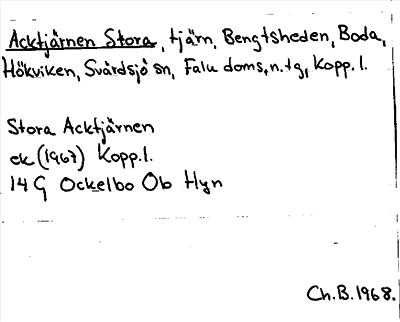 Acktjärnen Stora, tjärn, Bengtsheden, Boda,
Hökviken, Svärdsjö sn, Falu doms.n.tg, Kopp.l.
Stora Acktjärnen
ek (1967) Kopp.l.
14 G Ockelbo Ob Hyn
Ch.B.1968.